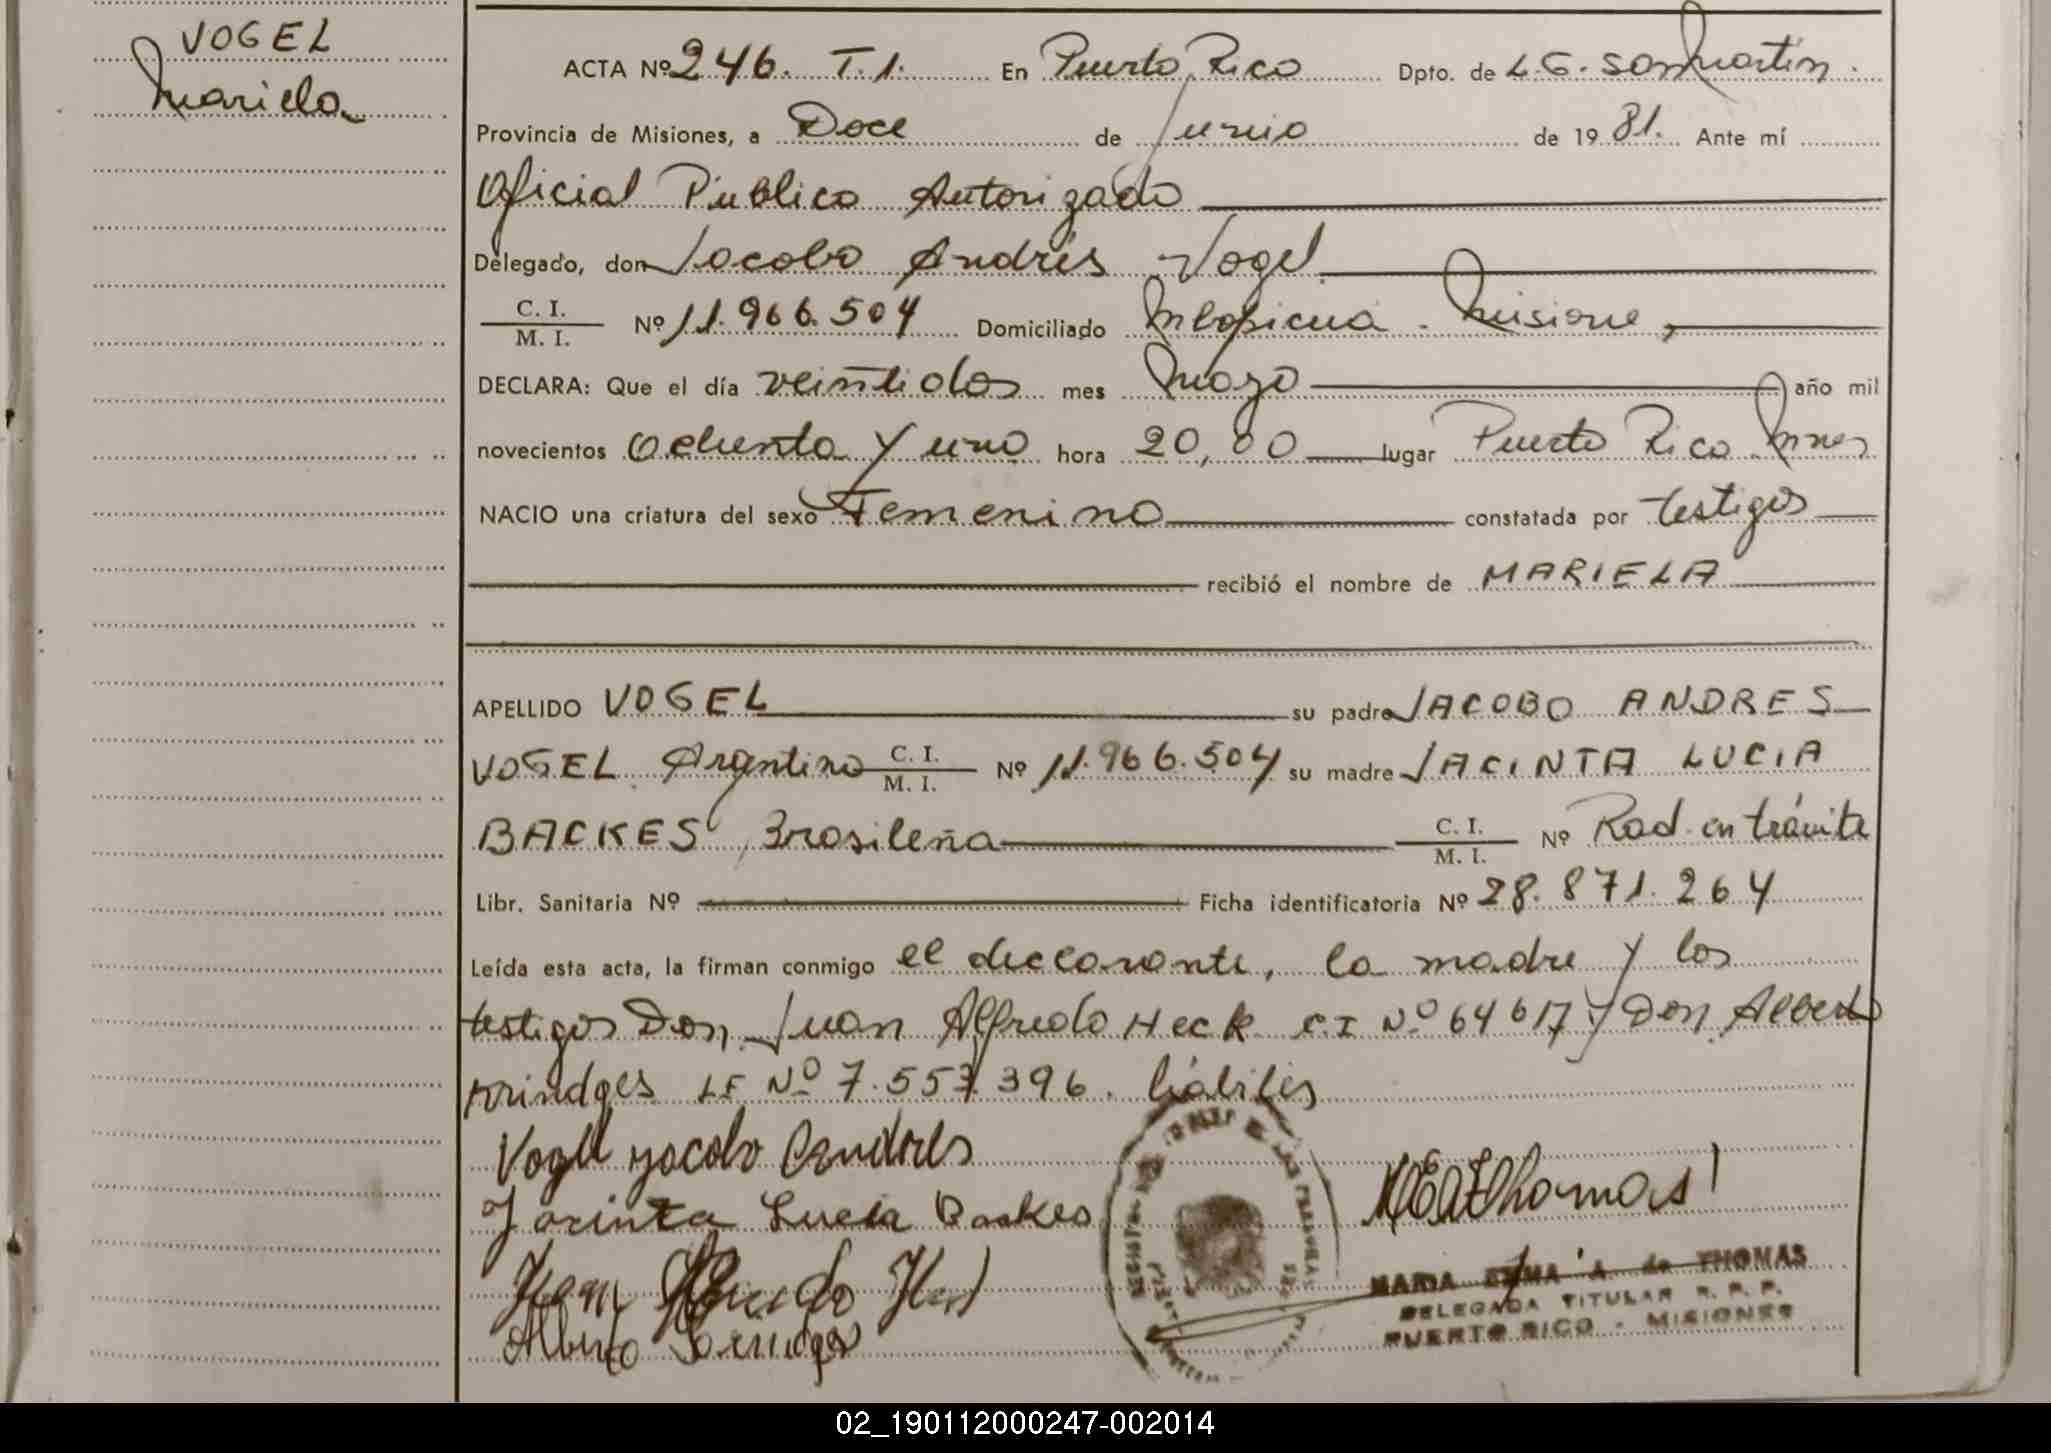 VOGEL
Mariela
ACTA Nº 246. T.1. En Puerto Rico Dpto. de L.G. San Martín.
Provincia de Misiones, a Doce de Junio de 1981. Ante mí
Oficial Público Autorizado
Delegado, don Jacobo Andrés Vogel
C. I.
M. I. Nº 11.966.504 Domiciliado Mbopicuá - Misiones
DECLARA: Que el día veintidos mes Mayo año mil
novecientos Ochenta y uno hora 20,00 lugar Puerto Rico Mnes
NACIO una criatura del sexo Femenino constatada por testigos
recibió el nombre de MARIELA
APELLIDO VOGEL su padre JACOBO ANDRES
VOGEL Argentino C. I. M. I. Nº 11.966.504 su madre JACINTA LUCIA
BACKES, Brasileña C. I. M. I. Nº Rad. en trámite
Libr. Sanitaria Nº Ficha identificatoria Nº 28.871.264
Leída esta acta, la firman conmigo el declarante, la madre y los
testigos Don Juan Alfredo Heck C.I Nº 64617 y Don Alberto
LE Nº 7.557.396. hábiles
Vogel Jacobo Andres
Jacinta Lucia Backes
Alberto
MARIA A. de THOMAS
DELEGADA TITULAR R. P. P.
PUERTO RICO - MISIONES
02_190112000247-002014